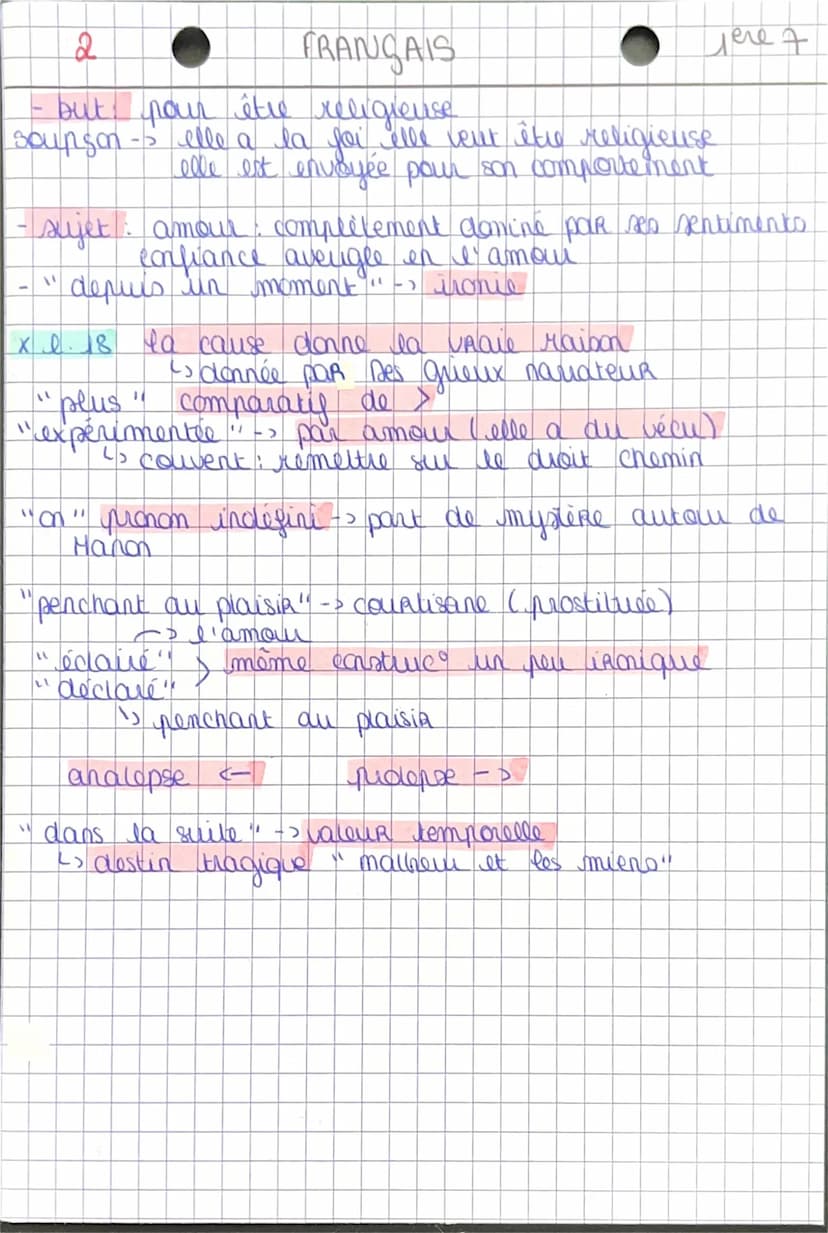 2 FRANÇAIS 1ère 7
- but : pour être religieuse
soupçon -> elle a la foi elle veut être religieuse
elle est envoyée pour son comportement
- sujet : amour : complètement dominé par ses sentiments
confiance aveugle en l'amour
- "depuis un moment" -> ironie
x l. 18 la cause donne la vraie raison
↳ donnée par Des Grieux narrateur
"plus" comparatif de >
"expérimentée" -> par amour (elle a du vécu)
↳ couvent : remettre sur le droit chemin
"on" pronom indéfini -> part de mystère autour de
Manon
"penchant au plaisir" -> courtisane (prostituée)
-> l'amour
"éclairé" > même construc° un peu ironique
"déclaré"
↳ penchant au plaisir
analepse <- prolepse ->
"dans la suite" -> valeur temporelle
↳ destin tragique "malheur et les miens"